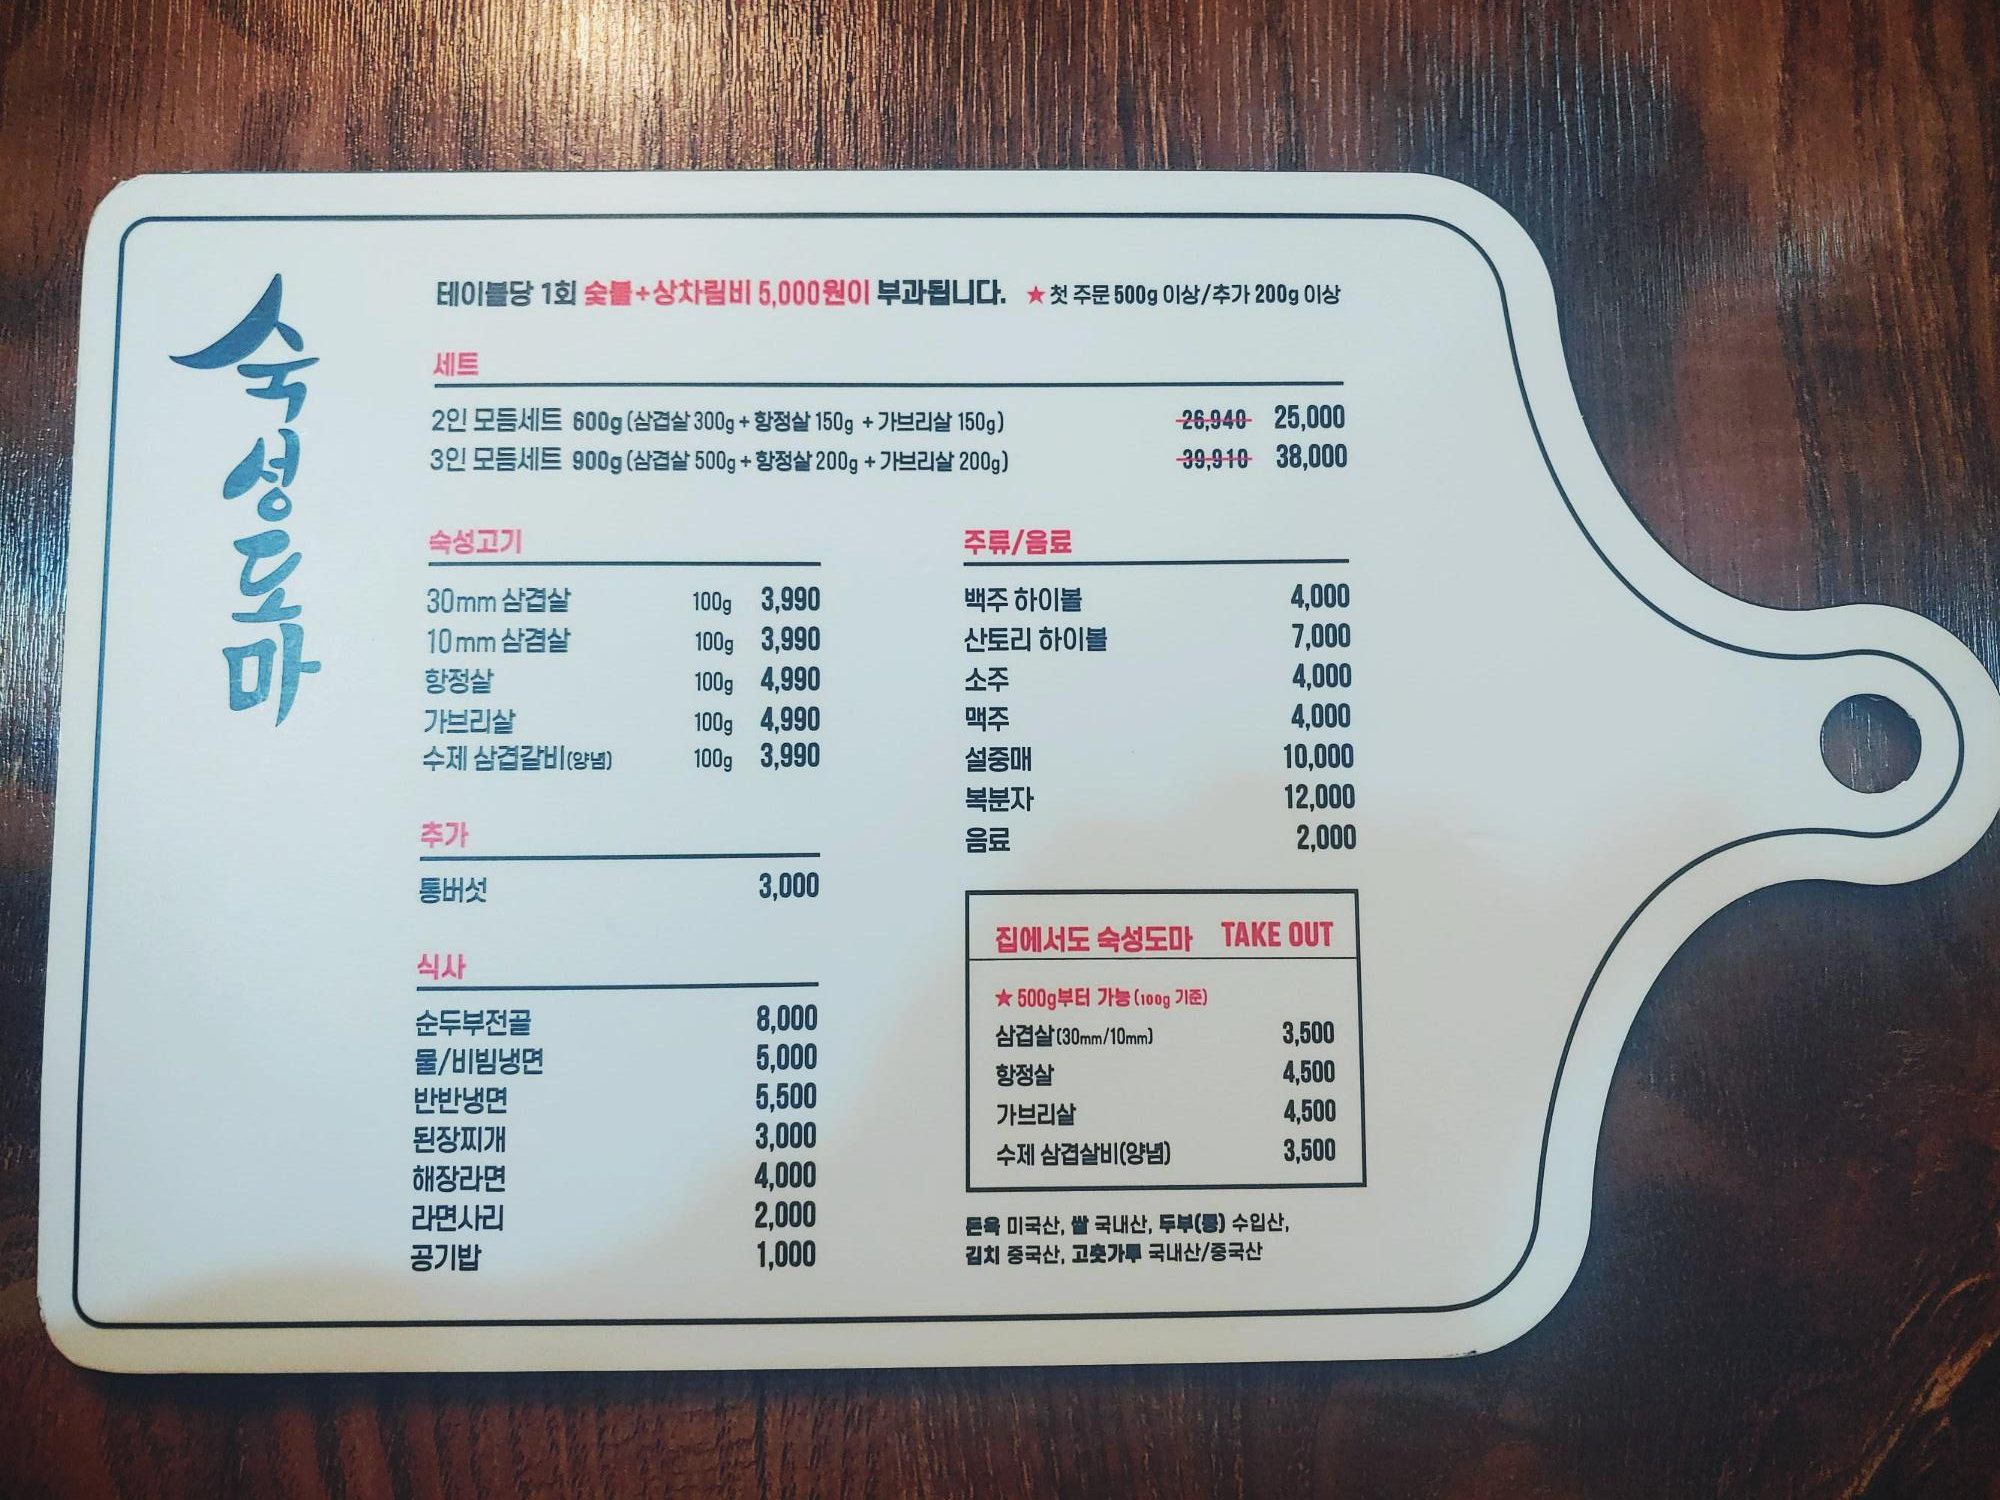 숙성도마
테이블당 1회 숯불+상차림비 5,000원이 부과됩니다. ★ 첫 주문 500g 이상/추가 200g 이상
세트
2인 모듬세트 600g (삼겹살 300g + 항정살 150g + 가브리살 150g) 26,940 25,000
3인 모듬세트 900g (삼겹살 500g + 항정살 200g + 가브리살 200g) 39,910 38,000
숙성고기
30mm 삼겹살 100g 3,990
10mm 삼겸살 100g 3,990
항정살 100g 4,990
가브리살 100g 4,990
수제 삼겹갈비(양념) 100g 3,990
추가
통버섯 3,000
식사
순두부전골 8,000
물/비빔냉면 5,000
반반냉면 5,500
된장찌개 3,000
해장라면 4,000
라면사리 2,000
공기밥 1,000
주류/음료
백주 하이볼 4,000
산토리 하이볼 7,000
소주 4,000
맥주 4,000
설중매 10,000
복분자 12,000
음료 2,000
집에서도 숙성도마 TAKE OUT
★ 500g부터 가능 (100g 기준)
삼겹살(30mm/10mm) 3,500
항정살 4,500
가브리살 4,500
수제 삼겹살비(양념) 3,500
돈육 미국산, 쌀 국내산, 두부(콩) 수입산,
김치 중국산, 고춧가루 국내산/중국산